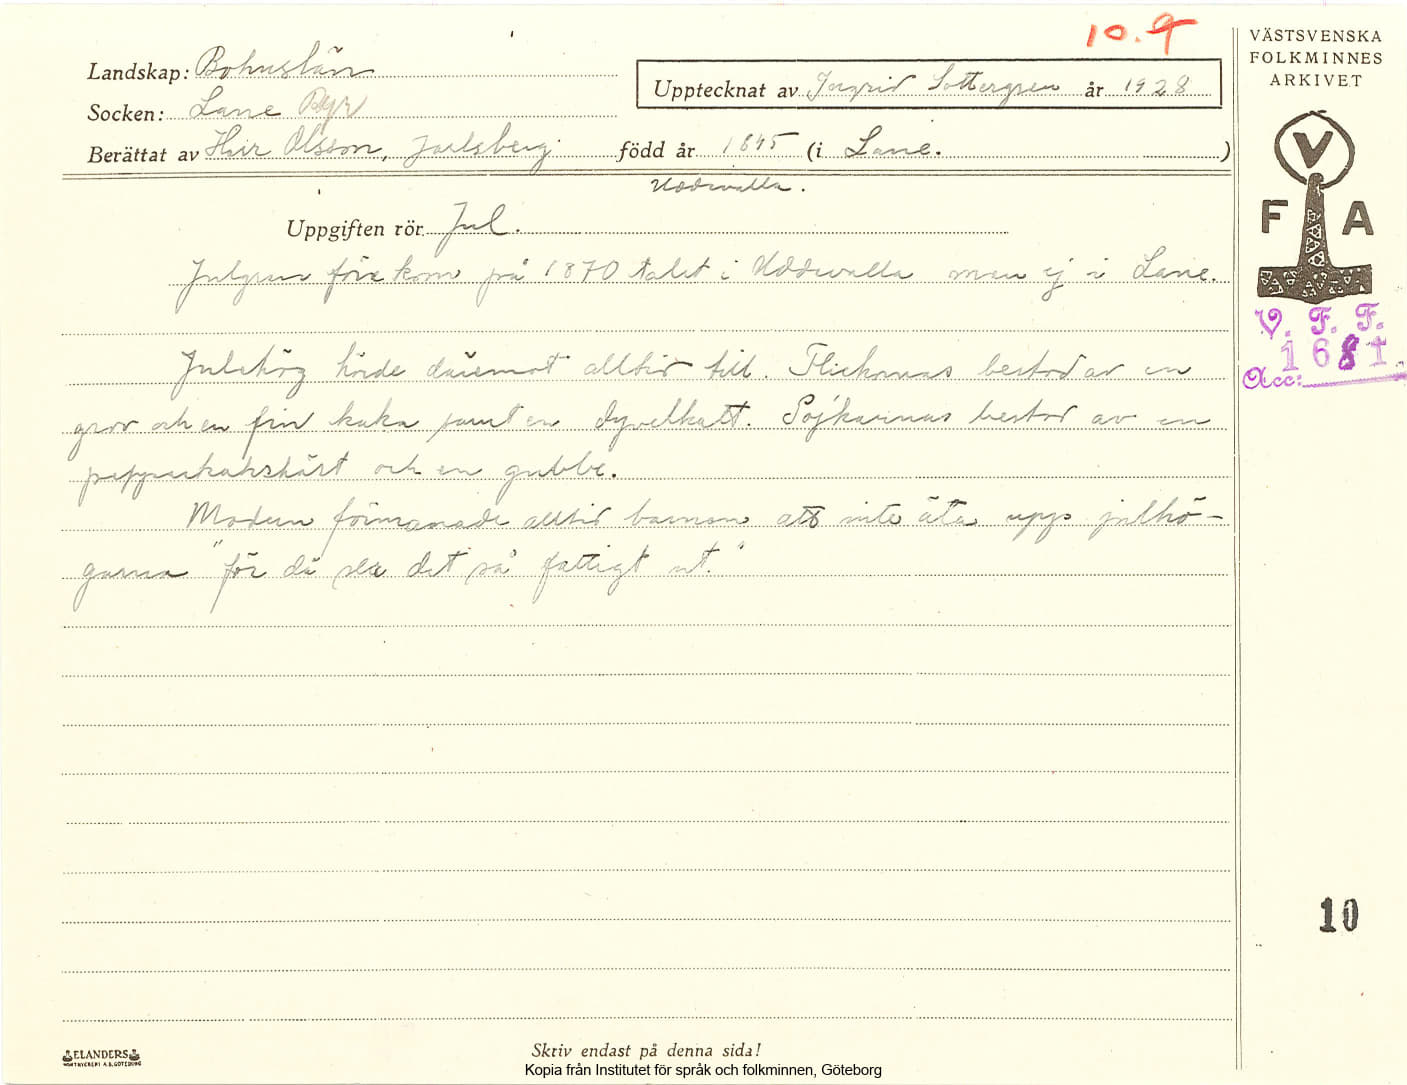 10.9
VÄSTSVENSKA
FOLKMINNES
ARKIVET
Landskap: Bohuslän
Upptecknat av Ingrid Sottergren år 1928
Socken: Lane Ryr
Berättat av Olsson, Jarlsberg född år 1845 (i Lane. )
Uddevalla.
Uppgiften rör Jul.
V
F A
V. F. F.
1681
Acc:
Julgran förekom på 1870 talet i Uddevalla men ej i Lane.
Julahög hörde däremot alltid till. Flickornas bestod av en
grov och en fin kaka samt en dyvelkatt. Pojkarnas bestod av en
pepparkakshäst och en gubbe.
Modern förmanade alltid barnen att inte äta upp julhö-
garna "för då ser det så fattigt ut."
10
ELANDERS
Skriv endast på denna sida!
Kopia från Institutet för språk och folkminnen, Göteborg